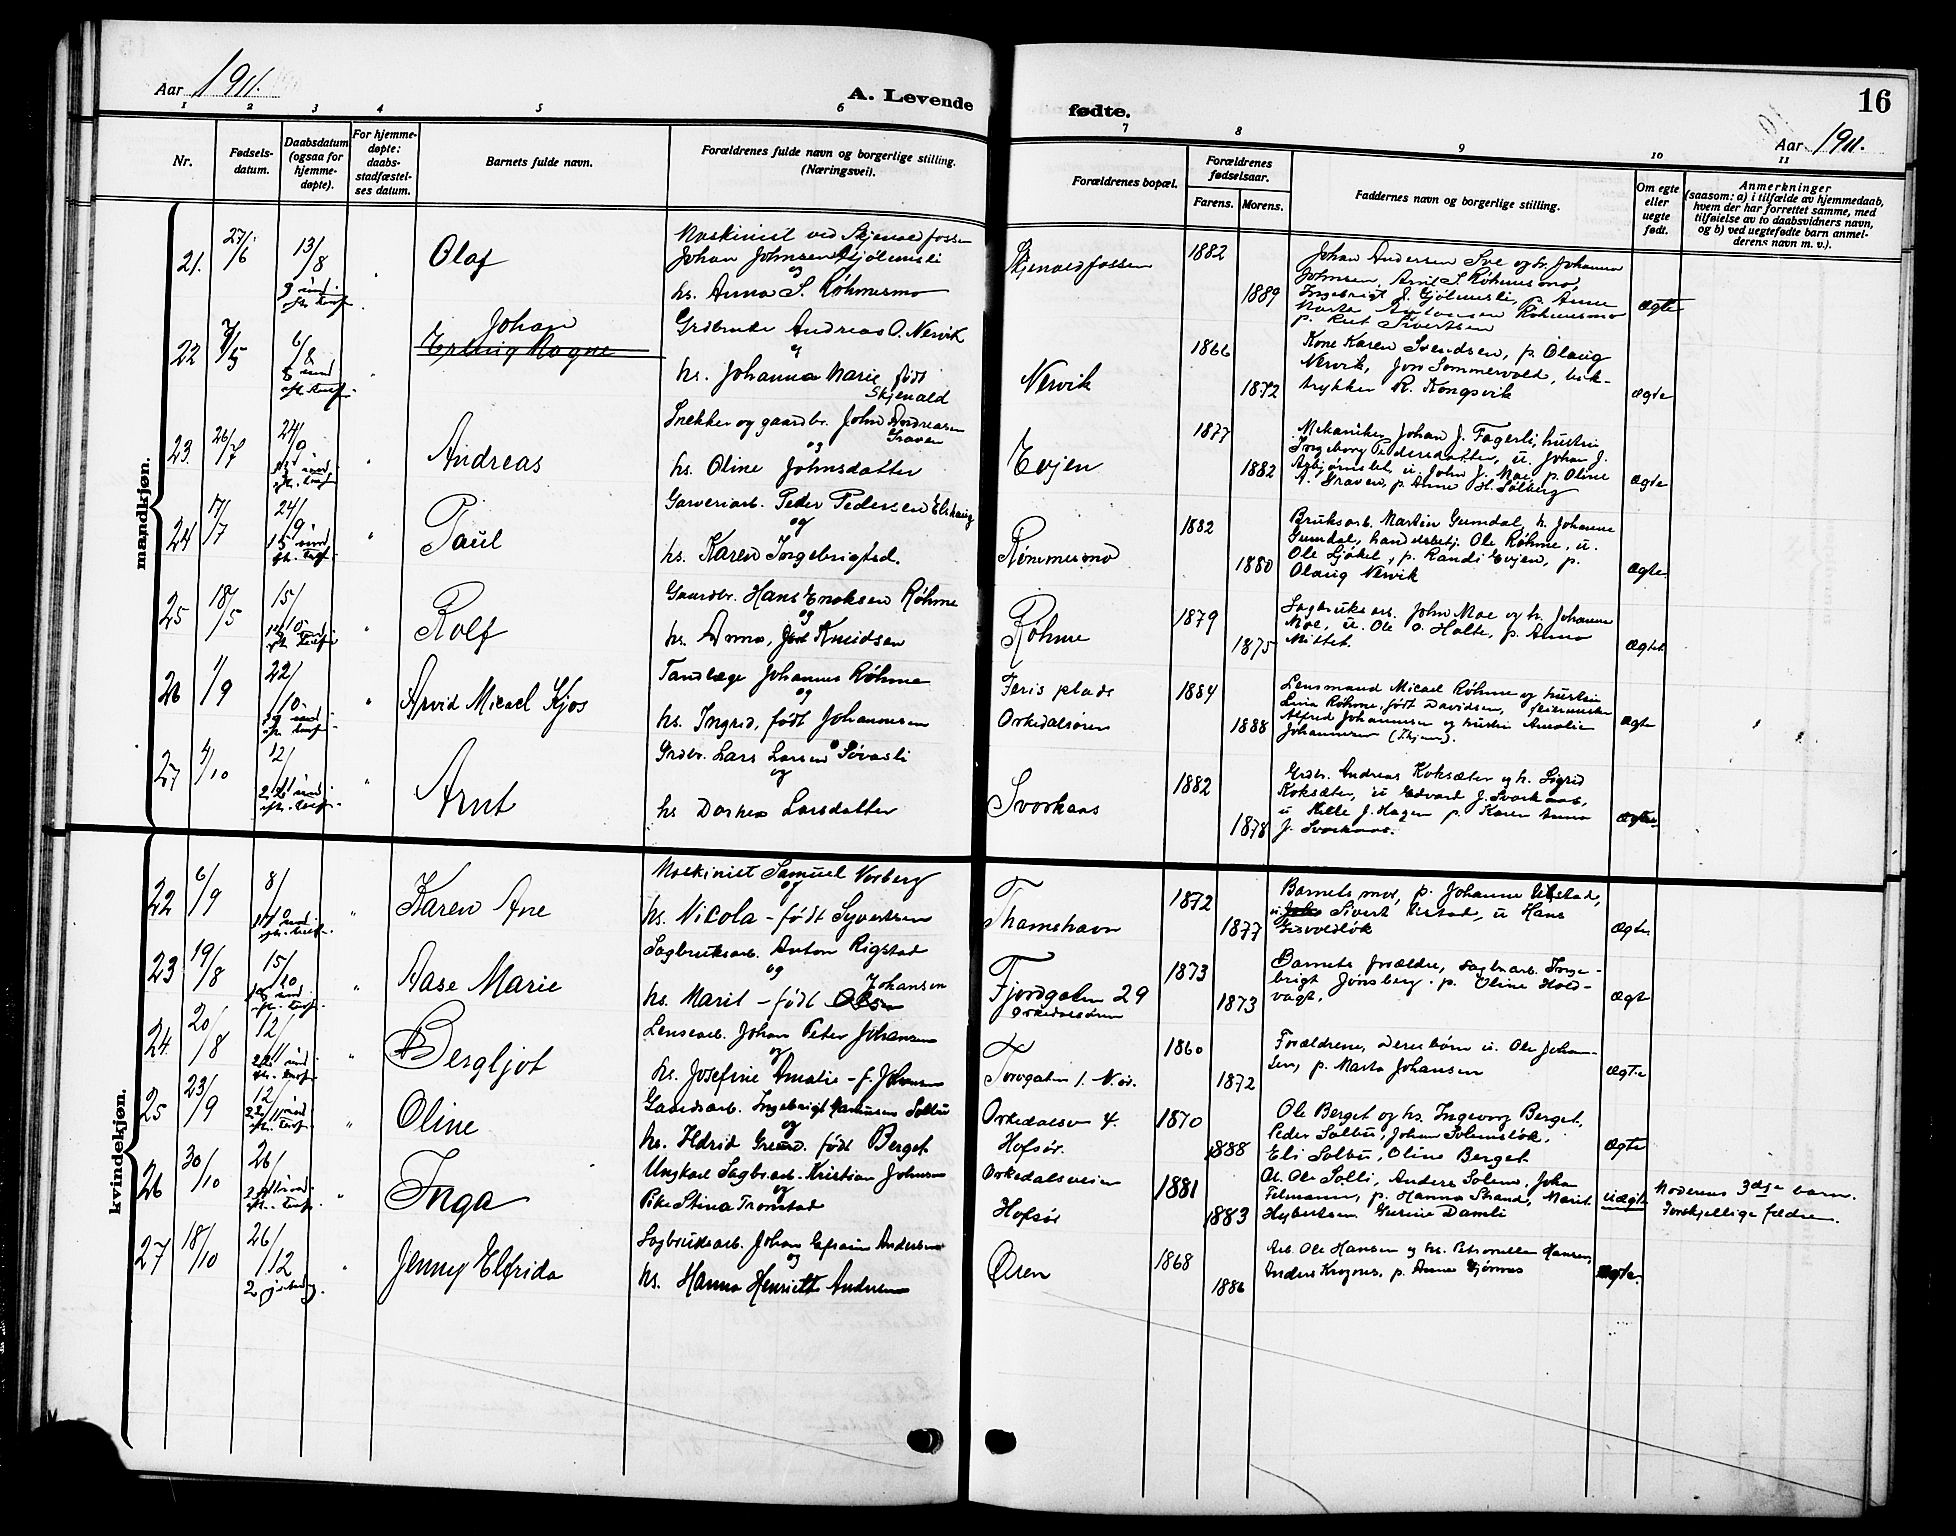 Aar 1911.
A. Levende
fødte.
16
Aar 1911.
1 2 3 4 5 6 7 8 9 10 11
Nr.
Fødsels-
datum.
Daabsdatum
(ogsaa for
hjemme-
døpte).
For hjemme-
døpte:
daabs-
stadfæstel-
ses datum.
Barnets fulde navn.
Forældrenes fulde navn og borgerlige stilling.
(Næringsvei).
Forældrenes bopæl.
Forældrenes
fødselsaar.
Farens. Morens.
Faddernes navn og borgerlige stilling.
Om egte
eller
uegte
født.
Anmerkninger
(saasom: a) i tilfælde av hjemmedaab,
hvem der har forrettet samme, med
tilføielse av to daabsvidners navn,
og b) ved uegtefødte barn anmel-
derens navn m. v.).
mandkjøn.
21. 27/6 13/8
9 sønd.
Olaf
Maskinist ved Skjenaldfossen
Johan Johnsen
og
hs. Anna S. Röhmesmo
Skjenaldfossen
1882
1889
Johan Andersen Sve og h. Johanna
Johnsen, Arnt S. Røhmesmo,
Ingebrigt J. Gjölmesli, p. Anne
Marta Røhmesmo
p. Sivertsen
ægte
22 7/5 6/8
8 sønd
Johan
Erling Magne
Grdbruker Andreas O. Nervik
og
hs. Johanna Marie født
Skjenald
Nervik
1866
1872
Kone Karen Svendsen, p. Olaug
Nervik, Jon Sommervold, bok-
trykker R. Kongsvik
ægte
23. 26/7 24/9
15 sønd
Andreas
Snekker og gaardbr. John Andreasen
Graven
og
hs. Oline Johnsdatter
Evjen
1877
1882
Mekaniker Johan J. Fagerli, hustru
Ingeborg Pedersdatter, u. Johan J.
Asbjørnslet, u. John J. Moe, p. Oline
A. Graven, p. Anne H. Solberg
ægte
24 17/7 24/9
15 sønd
Paul
Garveriarb. Peder Pedersen
og
hs. Karen Ingebrigtsd.
Rømmesmo
1882
1880
Bruksarb. Martin Gumdal, h. Johanne
Gumdal, handelsbetj. Ole Røhme, u.
Ole Ljøkel, p. Randi Evjen, p.
Olaug Nervik
ægte
25 18/5 15/10
Rolf
Gaardbr. Hans Enoksen Røhme
og
hs. Anna, født Knudsen
Røhme
1879
1875
Sagbruksarb. John Moe og h. Johanna
Moe, u. Ole O. Holte, p. Anna
Mittet.
ægte
26 1/9 22/10
19 sønd
Arvid Micael Kjos
Tandlæge Johannes Røhme
og
hs. Ingrid, født Johannesen
Orkedalsøren
1884
1888
Lensmand Micael Røhme og hustru
Lina Røhme, født Davidsen,
Alfred Johannesen og hustru Amalie
Johannesen
ægte
27 4/10 12/11
22 sønd
Arnt
Grdbr. Lars Larsen Søvasli
og
hs Dorthea Larsdatter
Svorkaas
1882
1878
Grdbr. Andreas Koksæter og h. Sigrid
Koksæter, u Edvard J. Svorkaas,
u Kelle J. Hagen p. Karen Anna
J. Svorkaas.
ægte
kvindekjøn.
22 6/9 8/
17 sønd
Karen Ane
Maskinist Samuel Vorberg
og
hs. Nicola - født Syvertsen
Thamshavn
1872
1877
Barnets mor, p. Johanne
u. Sivert, u Hans
Grovoldlök
ægte
23 19/8 15/10
18 sønd
Aase Marie
Sagbruksarb. Anton Rigstad
og
hs. Marit - født Olsen Johansen
Fjordgaten 29
Orkedalsøren
1873
1873
Barnets forældre, sagbr.arb. Inge-
brigt Jönsberg. p. Oline Hold-
vagt.
ægte
24. 20/8 12/11
22 sønd
Bergljot
Lensearb. Johan Peter Johansen
og
hs. Josefine Amalie - f. Johansen
Torvgaten 1.
1860
1872
Forældrene, deres børn u. Ole Johan-
sen, p. Marta Johansen
ægte
25 23/9 12/11
22 sønd
Oline
Gaardsarb. Ingebrigt Solbu
og
hs. født Berget
Orkedalsv 4.
Hofsör.
1870
1888
Ole Berget og hs. Ingeborg Berget,
Peder Solbu, Johan
Eli Solbu, Oline Berget
ægte
26 30/10 26/
Inga
Ungkarl Sagbr.arb. Kristian Johnsen
og
Pike Stina Tronstad
Orkedalsveien
Hofsör
1881
1883
Ar. Ole Solli, Anders Solem, Johan
Filmann, p. Hanna Strand, Marit
Hybertsen Gurine Damli
uægte
Moderens 3die barn.
Forskjellige fædre.
27 18/10 26/12
2 juledag.
Jenny Elfrida
Sagbruksarb. Johan Efraim Andersen
og
hs. Hanna Henriette Andersen
Øren
1868
1886
Arb. Ole Hansen og hs. Petronella Hansen,
Anders, p. Anna
ægte.